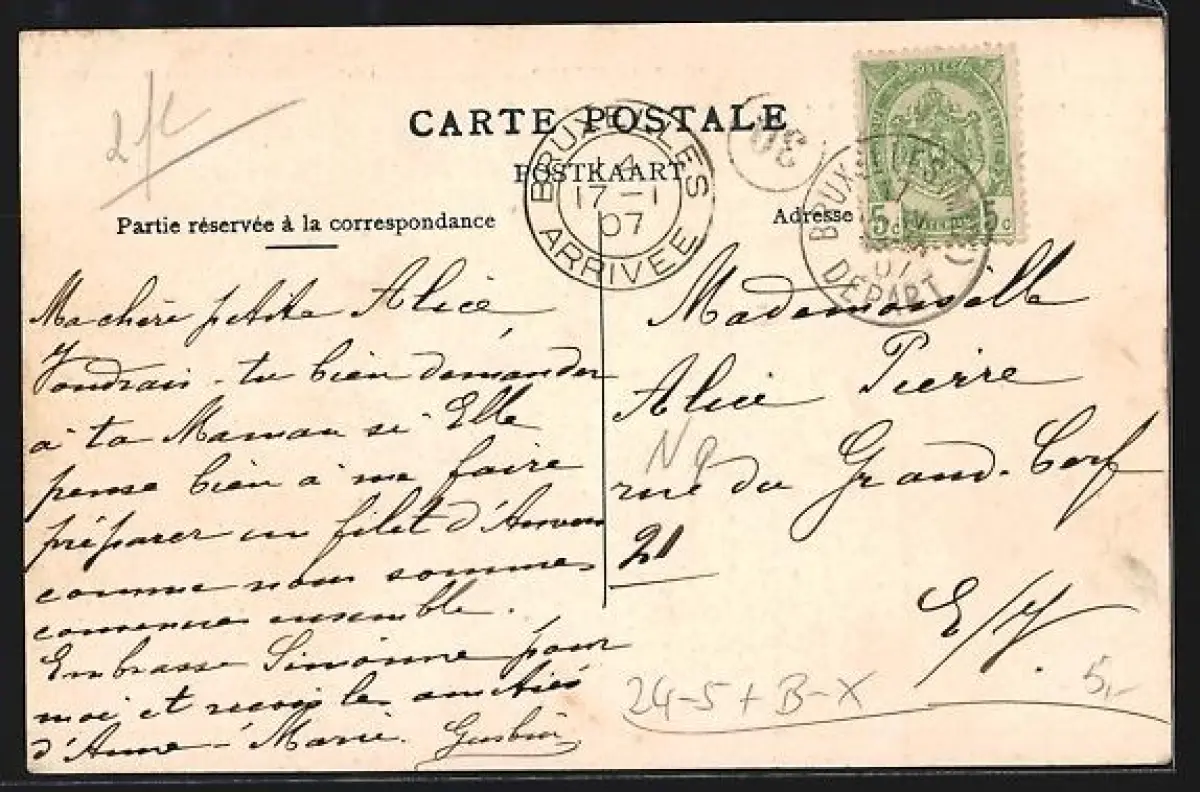 2f
CARTE POSTALE
POSTKAART
Partie réservée à la correspondance
Adresse
BRUXELLES
17-1
07
ARRIVÉE
30
BRUXELLES
07
DÉPART
POSTES
5c 5c
Ma chère petite Alice
Voudrais-tu bien demander
à ta Maman si Elle
pense bien à me faire
préparer un filet d'Anvers
comme nous sommes
convenues ensemble.
Embrasse Simonne pour
moi et reçois les amitiés
d'Anne-Marie.
Mademoiselle
Alice Pierre
rue du Grand-Cerf
21
E/V.
24-5+B-X
5,-